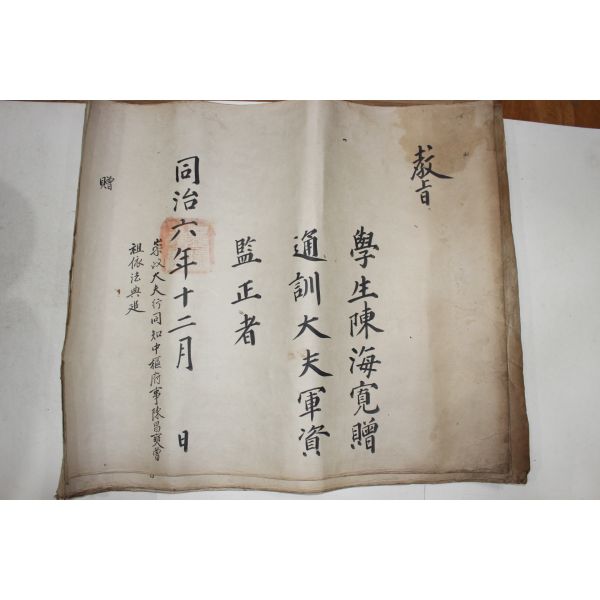 教旨
學生陳海寬贈
通訓大夫軍資
監正者
同治六年十二月　日
崇政大夫行同知中樞府事陳昌奭曾
祖依法典追
贈